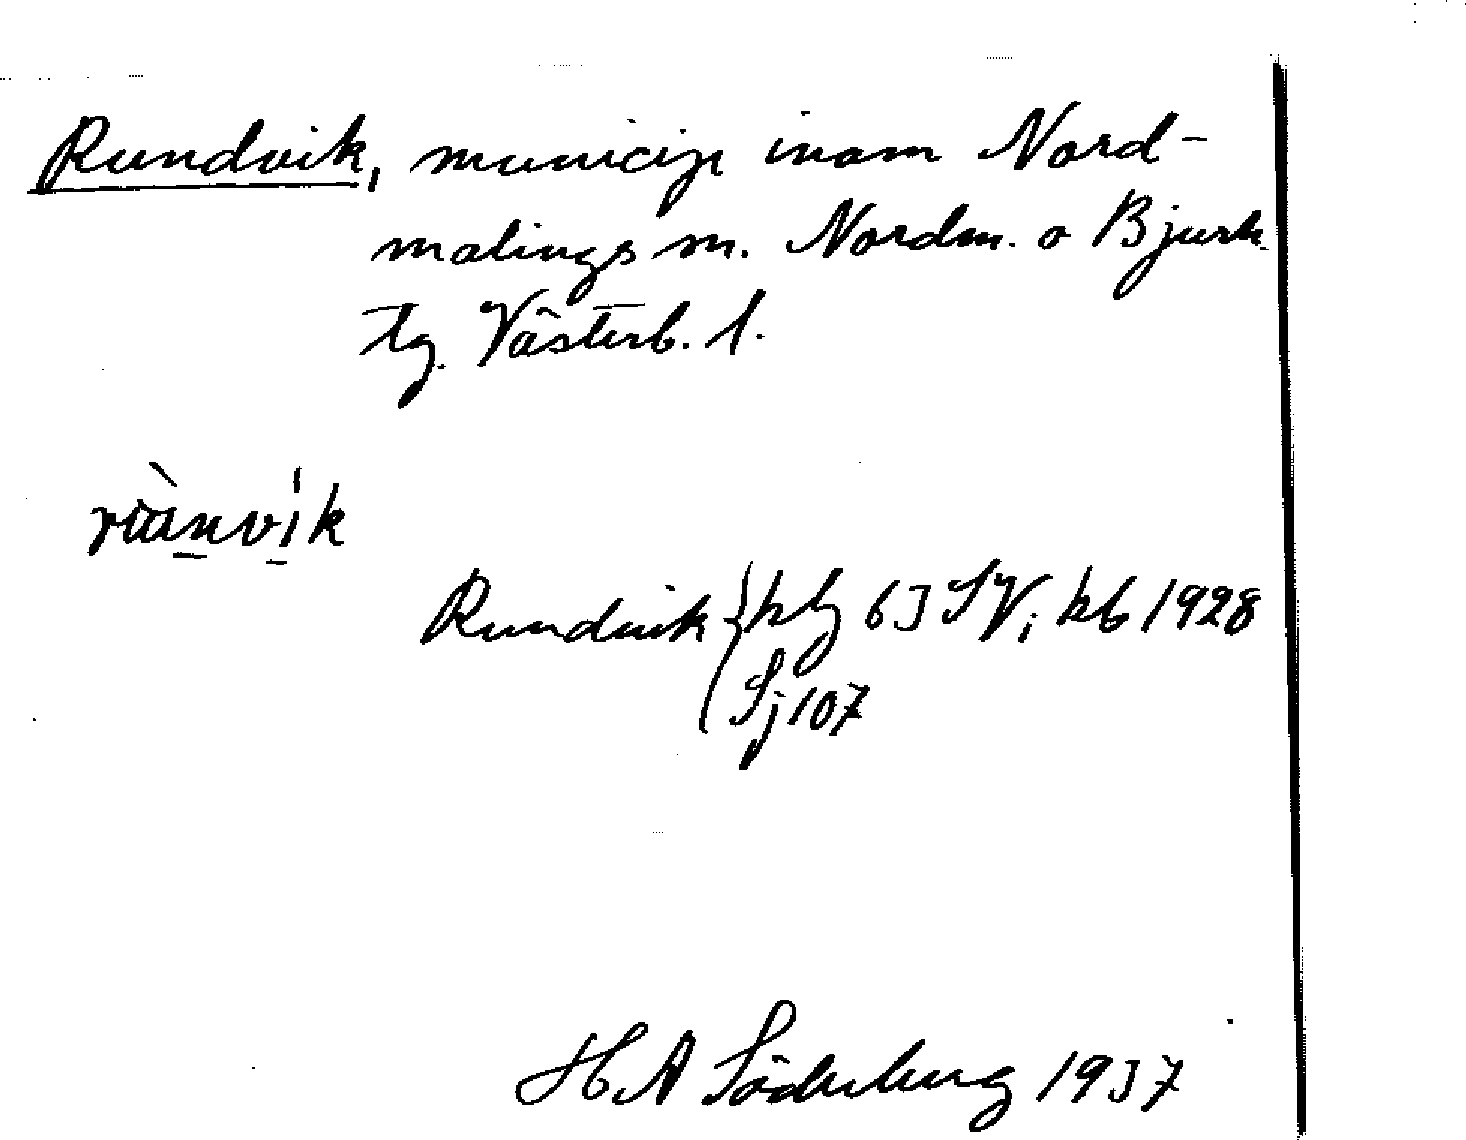 Rundvik, municip inom Nord-
malings sn. Nordm. o Bjurh.
tg. Västerb. l.
Rundvik { kbg 63 SV; kb 1928
Sj 107
H A Söderberg 1937